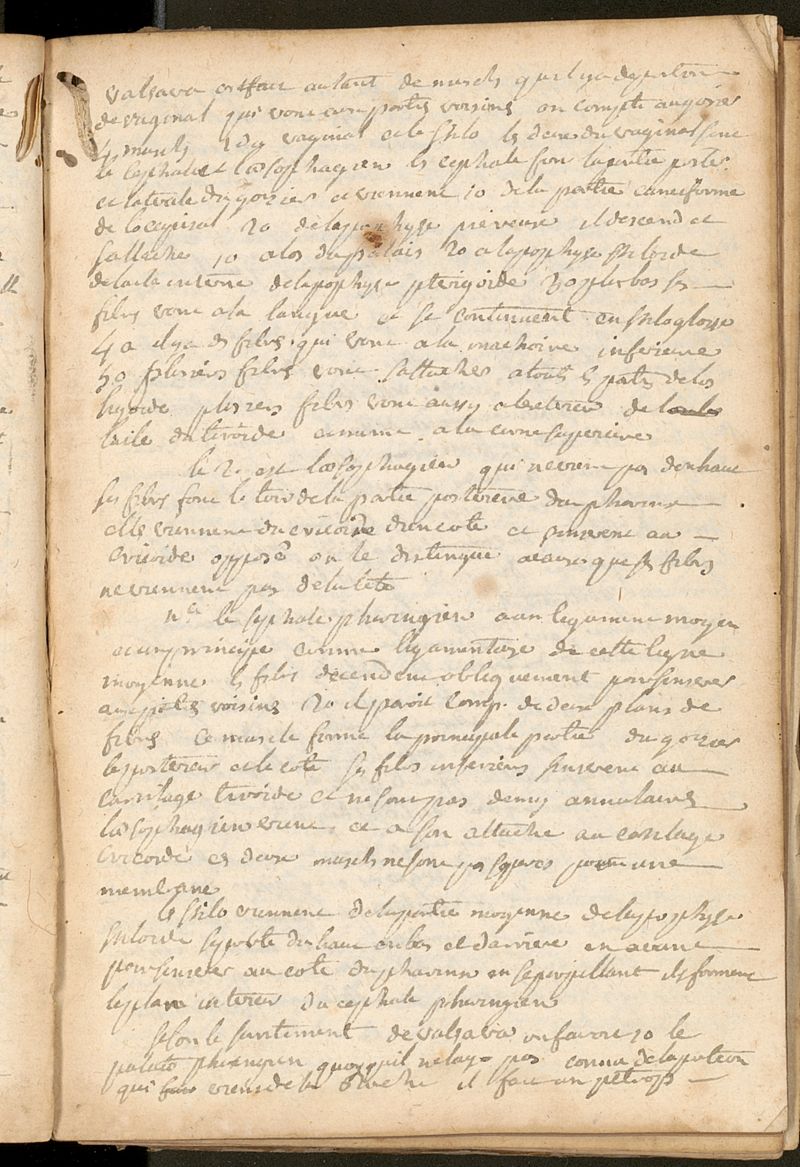 valsava en fait autant de muscls quil y a de portion
de vaginal qui vont aux parties voisins on compte au gosier
4 muscls 2 du vaginal et le stilo les deux du vaginal sont
le cephale et l'œsophagien le cephale fou la partie poster
et laterale du gosier et viennent 10 de la partie cuneiforme
de loccipital 20 de lapophyse pierreuse il descend et
sattache 10 a los du palais 20 a lapophyse stiloide
de laile interne de lapophyse pterigoide 30 plus bas ses
fibres vont a la langue et se continuent en stiloglosse
40 il y a des fibres qui vont a la machoire inferieure
50 plusieurs fibres vont sattacher a touts les parties de los
hyoide plusieurs fibres vont aussy a lexterieur de
laile du tiroide comme a la corne superieure
le 2. est l'œsophagien qui ne vient pas den haut
ses fibres font le tour de la partie posterieure du pharinx
elles viennent du cricoide dun coté et sinserent au
cricoide opposé on le distingue acause que ses fibres
ne viennent pas de la tete
n.a le cephale pharingien a un ligament moyen
et un principe comme ligamentaire de cette ligne
moyenne les fibres decendent obliquement pour sinserer
aux parties voisines 20 il paroit comp. de deux plans de
fibres ce muscle forme la principale partie du gosier
le posterieur et le coté ses fibres inferieurs sinserent au
cartilage tiroide et ne sont pas demy annulaires
l'œsophagien vient et a son attache au cartilage
cricoide ces deux muscls ne sont pas separés par une
membrane
le stilo viennent de la partie moyenne de lapophyse
stiloide se porte du haut en bas et darriere en avant
pour sinserer au coté du pharinx en separpillant ils forment
le plan interieur du cephale pharingien
selon le sentiment de valsava on favorise le
palato pharingien quoyquil ne lay pas connu de la portion
qui vient de la bouche il fait un petrop